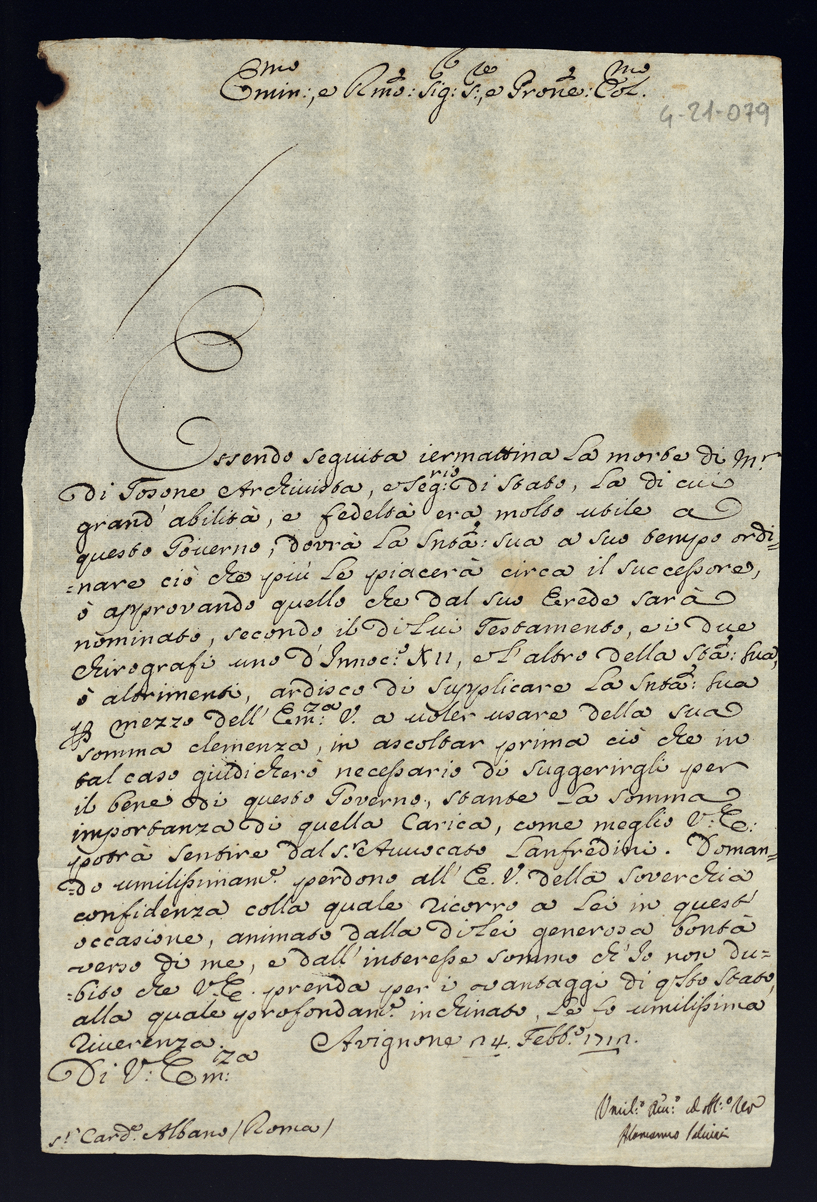 Emin:mo, e Rmo: Sig: Sre, e Prone: Colmo.
4-21-079
Essendo seguita iermattina la morte di Mr
Di Tosone Archivista, e Segrio: di Stato, la di cui
grand' abilità, e fedeltà era molto utile a
questo Governo, dovrà la Sntà: sua a suo tempo ordi=
=nare ciò che più le piacerà circa il successore,
ò approvando quello che dal suo Erede sarà
nominato, secondo il di lui Testamento, e i due
chirografi uno d'Innoco: XII, e l'altro della Stà: sua,
ò altrimenti, ardisco di supplicare la Sntà: sua
p mezzo dell' Emza: V. a voler usare della sua
somma clemenza, in ascoltar prima ciò che in
tal caso giudicherò necessario di suggerirgli per
il bene di questo Governo, stante la somma
importanza di quella Carica, come meglio V: E:
potrà sentire dal sr: Avvocato Lanfredini. Doman=
=do umilissimamte. perdono all' E. V. della soverchia
confidenza colla quale ricorro a Lei in quest'
occasione, animato dalla di Lei generosa bontà
verso di me, e dall' interesse sommo ch'Io non du=
=bito che V. E. prenda per i avantaggi di qsto Stato,
alla quale profondamte. inchinato, Le fo umilissima
riverenza.
Avignone 14. Febbo. 1717.
Di V: Emza:
Umilo: Divo: ed obblo: Sere
Alamanno Salviati
sr: Carde. Albano (Roma)